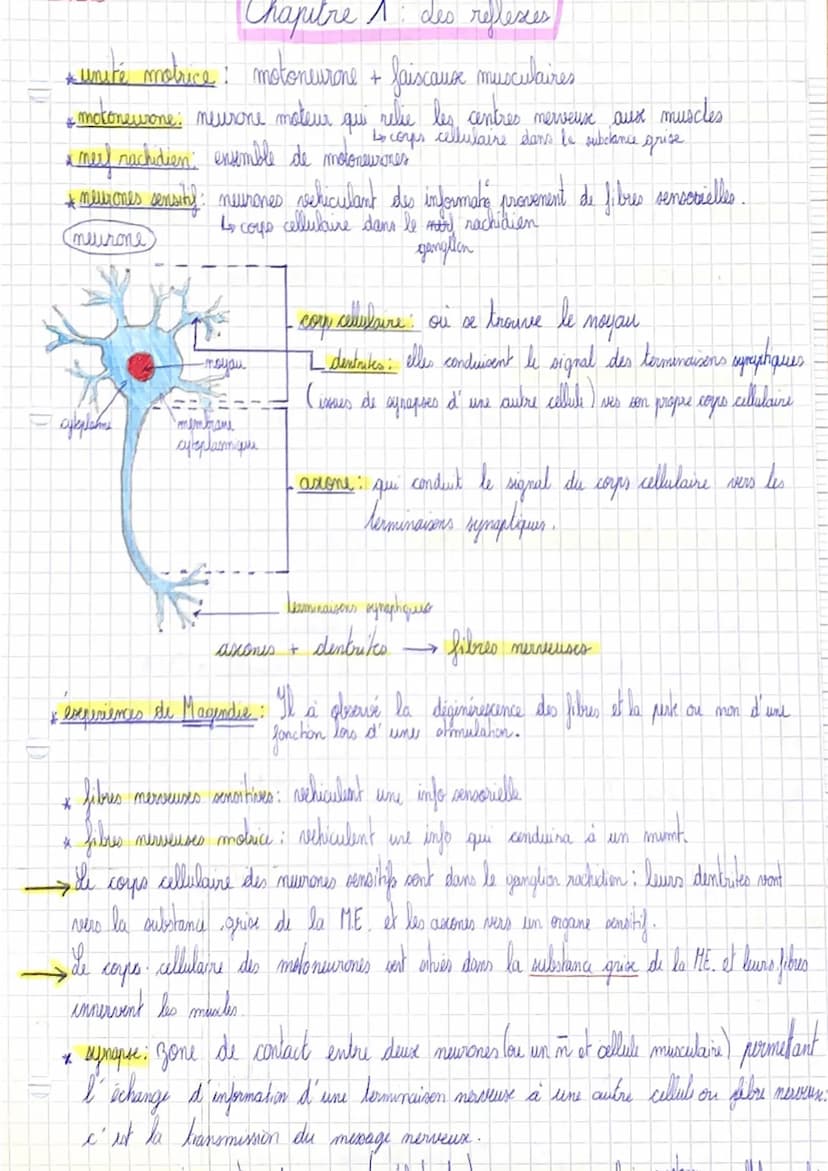 Chapitre 1 : des réflexes
* unité motrice : motoneurone + faiscaux musculaires
* motoneurone : neurone moteur qui relie les centres nerveux aux muscles
↳ corps cellulaire dans la substance grise
* nerf rachidien : ensemble de motoneurones
* neurones sensitif : neurones véhiculant des informat° provenent de fibres sensorielles.
↳ corps cellulaire dans le nerf rachidien
ganglion
neurone
corp cellulaire : où se trouve le noyau
noyau
dentrites : elles conduisent le signal des terminaisons synaptiques
(issues de synapses d'une autre cellule) vers son propre corps cellulaire
cytoplasme
membrane
cytoplasmique
axone : qui conduit le signal du corps cellulaire vers les
terminaisons synaptiques.
terminaisons synaptiques
axones + dentrites → fibres nerveuses
* expériences de Magendie : Il a observé la dégénérescence des fibres et la perte ou non d'une
fonction lors d'une stimulation.
* fibres nerveuses sensitives : véhiculent une info sensorielle
* fibres nerveuses motrice : véhiculent une info qui conduira à un mvmt.
→ Le corps cellulaire des neurones sensitifs sont dans le ganglion rachidien ; leurs dentrites vont
vers la substance grise de la ME. et les axones vers un organe sensitif.
→ Le corps cellulaire des motoneurones sont situés dans la substance grise de la ME. et leurs fibres
innervent les muscles.
* synapse : Zone de contact entre deux neurones (ou un n̄ et cellule musculaire) permettant
l'échange d'information d'une terminaison nerveuse à une autre cellule ou fibre nerveuse :
c'est la transmission du message nerveux.